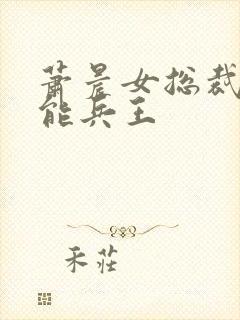 萧晨女总裁
能兵王
禾莊